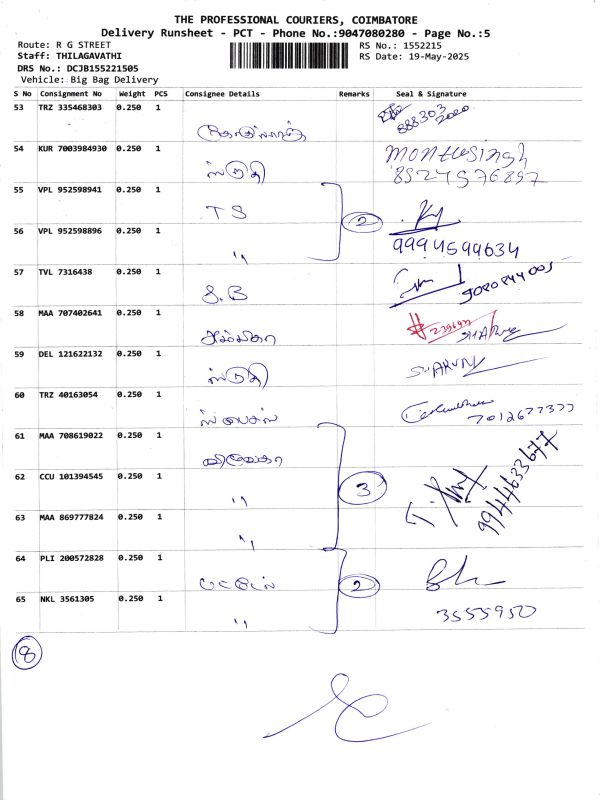 THE PROFESSIONAL COURIERS, COIMBATORE
Delivery Runsheet - PCT - Phone No.:9047080280 - Page No.:5
Route: R G STREET
RS No.: 1552215
Staff: THILAGAVATHI
RS Date: 19-May-2025
DRS No.: DCJB155221505
Vehicle: Big Bag Delivery
S No Consignment No Weight PCS Consignee Details Remarks Seal & Signature
53 TRZ 335468303 0.250 1
888303 2020
54 KUR 7003984930 0.250 1
ஸ்டுதி
Montusingh
8924576897
55 VPL 952598941 0.250 1
TS
2
56 VPL 952598896 0.250 1
9994599634
"
57 TVL 7316438 0.250 1
S.B
58 MAA 707402641 0.250 1
59 DEL 121622132 0.250 1
ஸ்டுதி
SHARVN
60 TRZ 40163054 0.250 1
ஸ்பைசஸ்
7012677377
61 MAA 708619022 0.250 1
62 CCU 101394545 0.250 1
"
3
9944633677
63 MAA 869777824 0.250 1
"
64 PLI 200572828 0.250 1
2
65 NKL 3561305 0.250 1
"
3555950
8